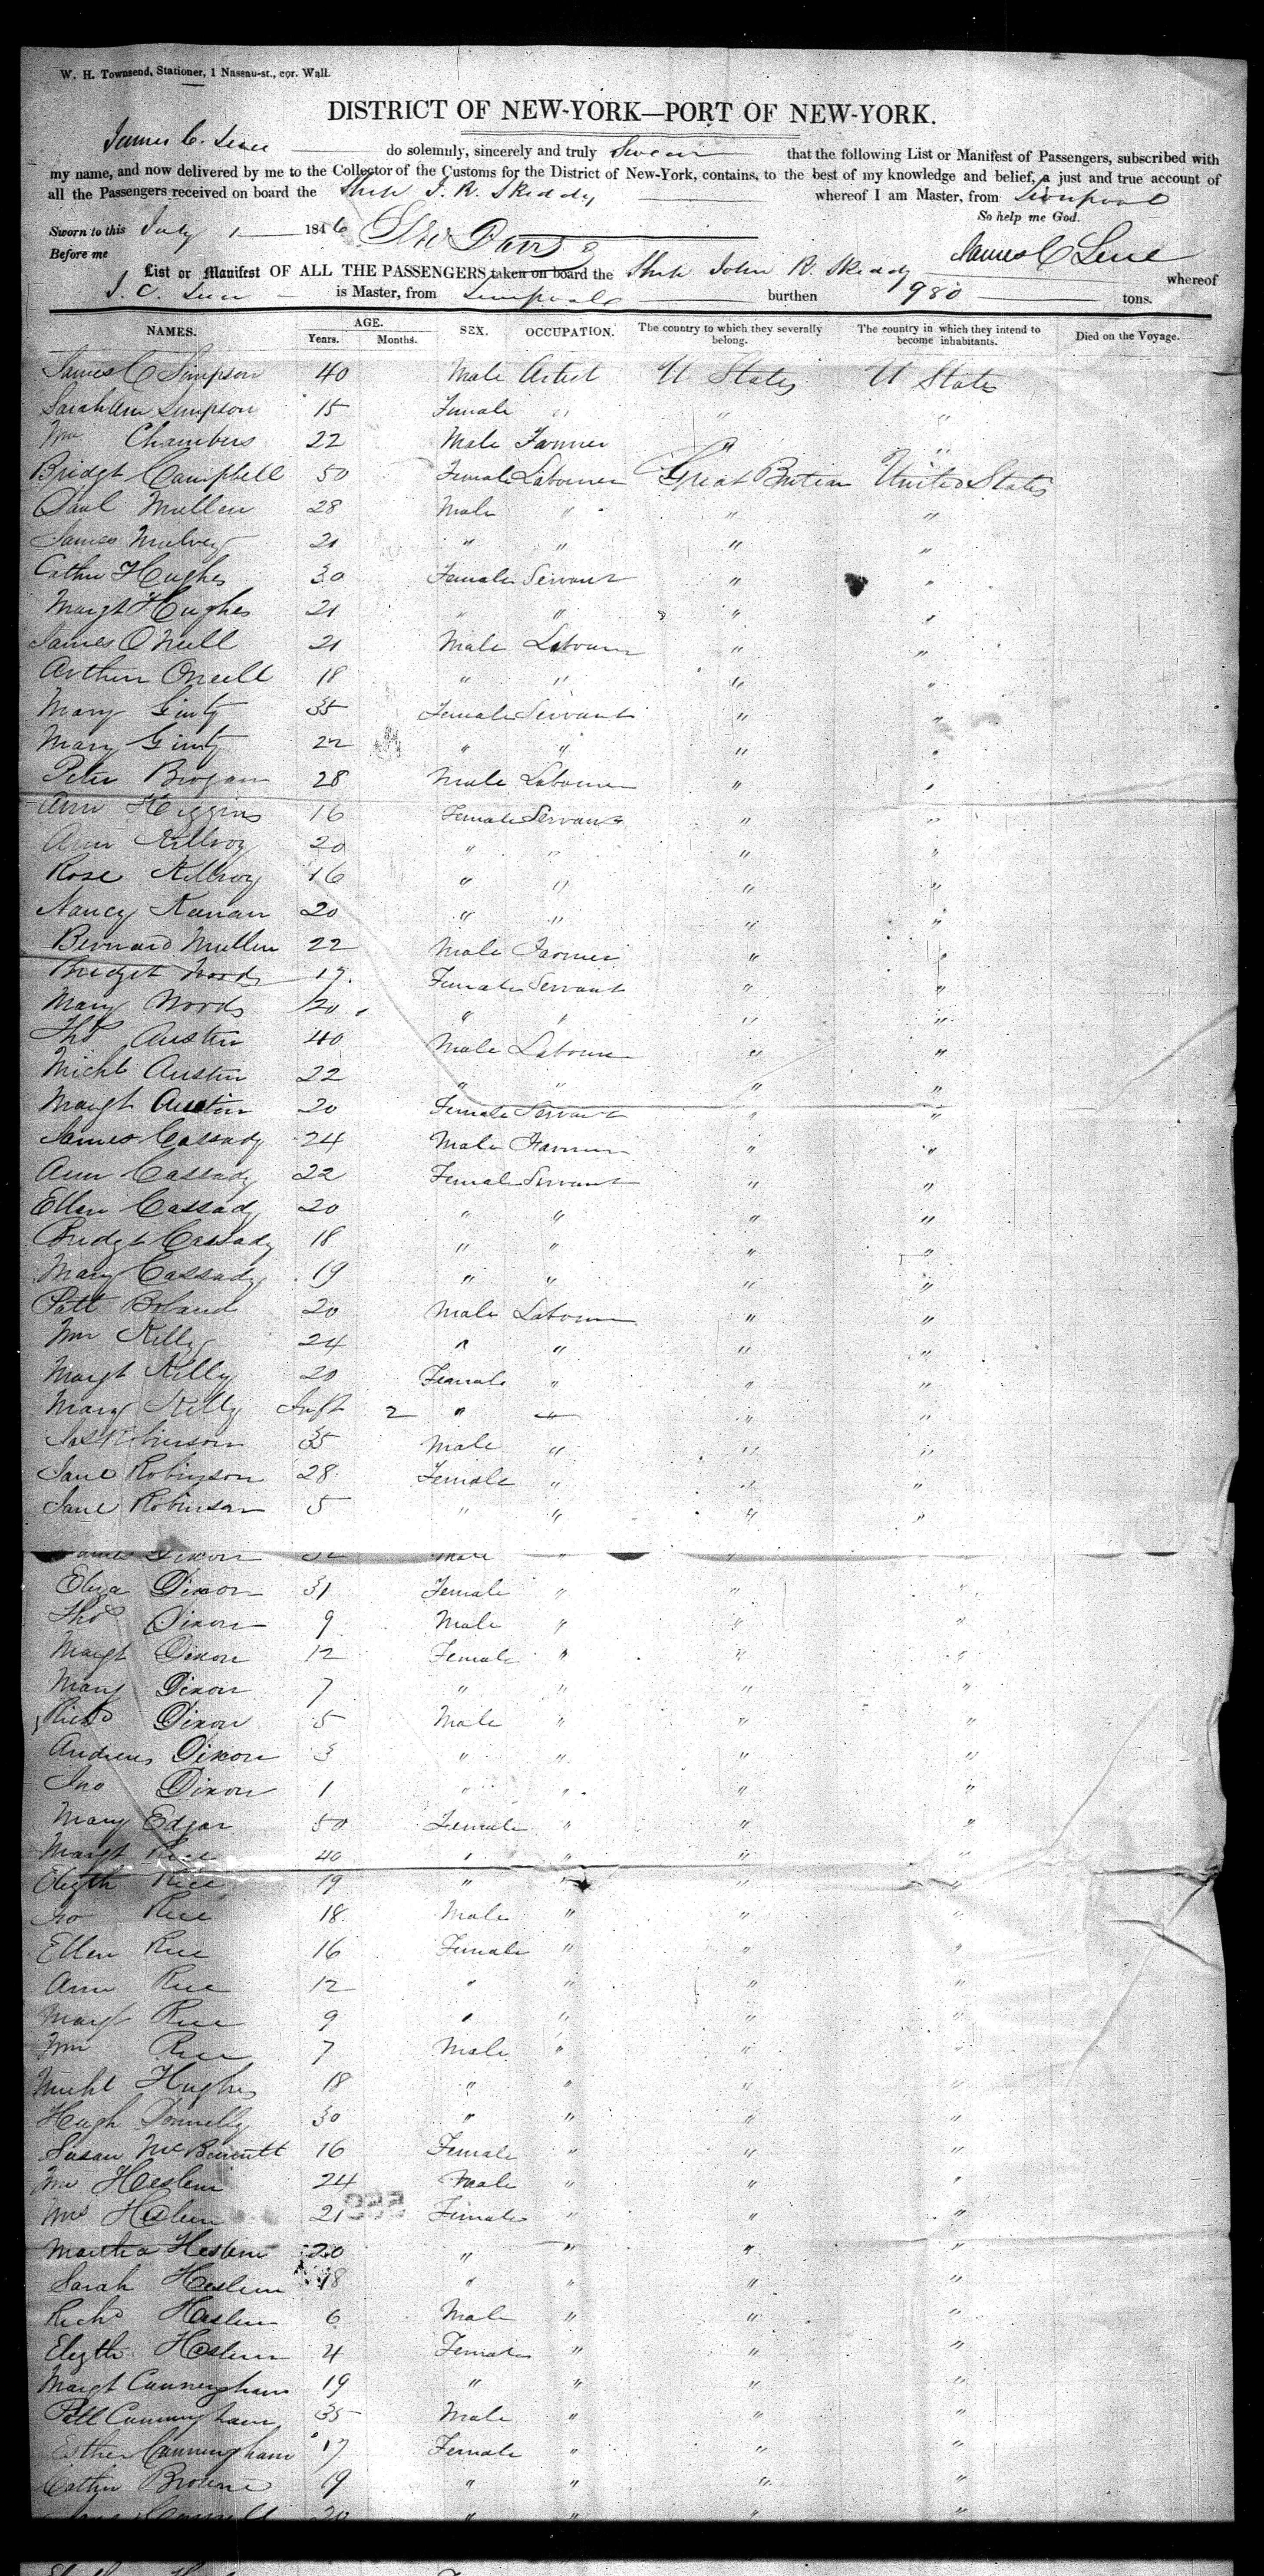 W. H. Townsend, Stationer, 1 Nassau-st., cor. Wall.
DISTRICT OF NEW-YORK—PORT OF NEW-YORK.
James C. Luce do solemnly, sincerely and truly Swear that the following List or Manifest of Passengers, subscribed with
my name, and now delivered by me to the Collector of the Customs for the District of New-York, contains, to the best of my knowledge and belief, a just and true account of
all the Passengers received on board the Ship J. R. Skiddy whereof I am Master, from Liverpool
So help me God.
Sworn to this July 1 1846 Davis
Before me James C Luce
List or Manifest OF ALL THE PASSENGERS taken on board the Ship John R. Skiddy whereof
J. C. Luce is Master, from Liverpool burthen 980 tons.
NAMES. AGE. Years. Months. SEX. OCCUPATION. The country to which they severally belong. The country in which they intend to become inhabitants. Died on the Voyage.
James C Simpson 40 Male Artist U States U States
Sarah Ann Simpson 15 Female " " "
Wm Chambers 22 Male Farmer " "
Bridgt Campbell 50 Female Labourer Great Britian United States
Paul Mullen 28 Male " " "
James Mulvey 21 " " " "
Cathn Hughes 30 Female Servant " "
Margt Hughes 21 " " " "
James O Neill 21 Male Labourer " "
Arthur Oneill 18 " " " "
Mary Ginty 35 Female Servant " "
Mary Ginty 22 " " " "
Peter Brogan 28 Male Labourer " "
Ann Higgins 16 Female Servant " "
Ann Killroy 20 " " " "
Rose Killroy 16 " " " "
Nancy Keenan 20 " " " "
Bernard Mullen 22 Male Farmer " "
Bridget Woods 17. Female Servant " "
Mary Woods 20 " " " "
Thos Austin 40 Male Labourer " "
Michl Austin 22 " " " "
Margt Austin 20 Female Servant " "
James Cassady 24 Male Farmer " "
Ann Cassady 22 Female Servant " "
Ellen Cassady 20 " " " "
Bridgt Cassady 18 " " " "
Mary Cassady 19 " " " "
Patt Boland 20 Male Labourer " "
Wm Kelly 24 " " " "
Margt Kelly 20 Female " " "
Mary Kelly Inft 2 " " " "
Jas Robinson 35 Male " " "
Jane Robinson 28 Female " " "
Jane Robinson 5 " " " "
James Dixon 32 Male " "
Eliza Dixon 31 Female " " "
Thos Dixon 9 Male " " "
Margt Dixon 12 Female " " "
Mary Dixon 7 " " " "
Richd Dixon 5 Male " " "
Andrew Dixon 3 " " " "
Jno Dixon 1 " " " "
Mary Edgar 50 Female " " "
Margt Rice 40 " " " "
Elizth Rice 19 " " " "
Jno Rice 18 Male " " "
Ellen Rice 16 Female " " "
Ann Rice 12 " " " "
Margt Rice 9 " " " "
Wm Rice 7 Male " " "
Michl Hughes 18 " " " "
Hugh Donnelly 30 " " " "
Susan 16 Female " " "
Wm Heslin 24 Male " " "
Mrs Heslin 21 Female " " "
Martha Heslin 20 " " " "
Sarah Heslin 18 " " " "
Richd Heslin 6 Male " " "
Elizth Heslin 4 Female " " "
Margt Cunningham 19 " " " "
Patt Cunningham 35 Male " " "
Esther Cunningham 17 Female " " "
Cathn Browne 19 " " " "
20 " " " "